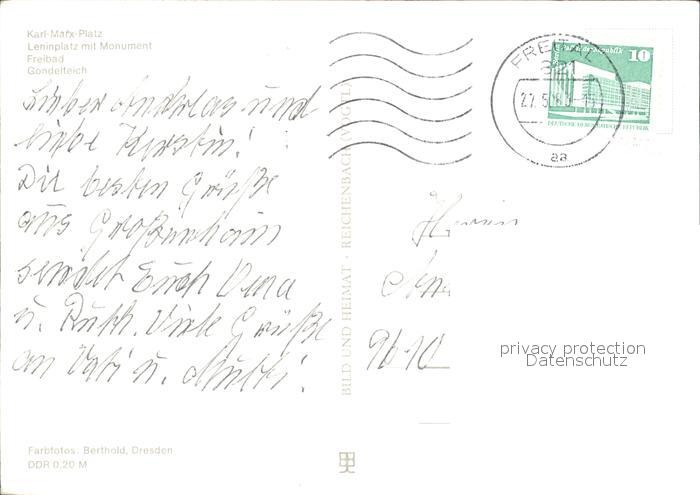 Karl-Marx-Platz
Leninplatz mit Monument
Freibad
Gondelteich
Lieber Andreas und
liebe Kerstin!
Die besten Grüße
aus Großenhain
sendet Euch Oma
u. Ruth. Viele Grüße
an Vati u. Mutti.
Farbfotos: Berthold, Dresden
DDR 0,20 M
BILD UND HEIMAT · REICHENBACH (VOGTL
FREITAL
10
DEUTSCHE DEMOKRATISCHE REPUBLIK
aa
privacy protection
Datenschutz